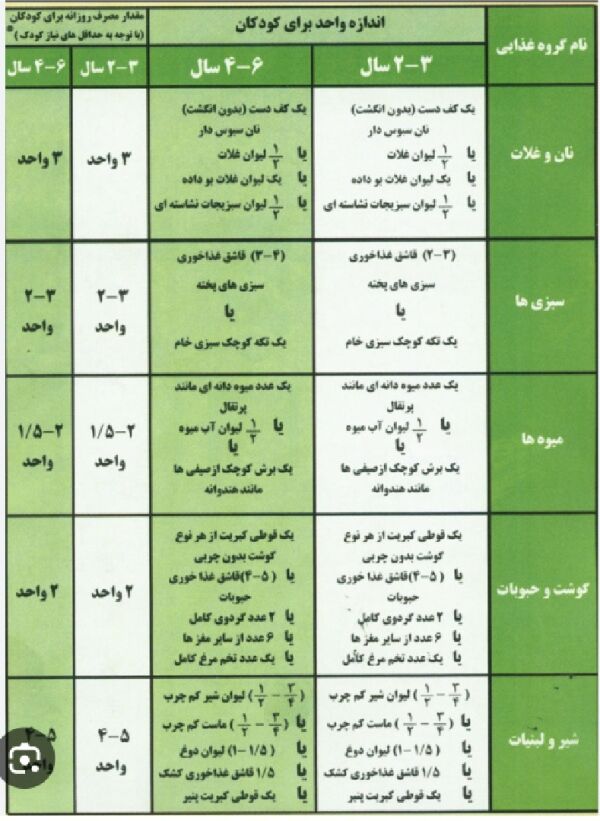 نام گروه غذایی
اندازه واحد برای کودکان
مقدار مصرف روزانه برای کودکان
(با توجه به حداقل های نیاز کودک)*
۲-۳ سال
۴-۶ سال
۲-۳ سال
۴-۶ سال
نان و غلات
یک کف دست (بدون انگشت)
نان سبوس دار
یا ۱/۲ لیوان غلات
یا یک لیوان غلات بو داده
یا ۱/۲ لیوان سبزیجات نشاسته ای
یک کف دست (بدون انگشت)
نان سبوس دار
یا ۱/۲ لیوان غلات
یا یک لیوان غلات بو داده
یا ۱/۲ لیوان سبزیجات نشاسته ای
۳ واحد
۳ واحد
سبزی ها
(۲-۳) قاشق غذاخوری
سبزی های پخته
یا
یک تکه کوچک سبزی خام
(۳-۴) قاشق غذاخوری
سبزی های پخته
یا
یک تکه کوچک سبزی خام
۲-۳
واحد
۲-۳
واحد
میوه ها
یک عدد میوه دانه ای مانند
پرتقال
یا ۱/۲ لیوان آب میوه
یا
یک برش کوچک ازصیفی ها
مانند هندوانه
یک عدد میوه دانه ای مانند
پرتقال
یا ۱/۲ لیوان آب میوه
یا
یک برش کوچک ازصیفی ها
مانند هندوانه
۱/۵-۲
واحد
۱/۵-۲
واحد
گوشت و حبوبات
یک قوطی کبریت از هر نوع
گوشت بدون چربی
یا (۴-۵)قاشق غذا خوری
حبوبات
یا ۲ عدد گردوی کامل
یا ۶ عدد از سایر مغز ها
یا یک عدد تخم مرغ کامل
یک قوطی کبریت از هر نوع
گوشت بدون چربی
یا (۴-۵)قاشق غذا خوری
حبوبات
یا ۲ عدد گردوی کامل
یا ۶ عدد از سایر مغز ها
یا یک عدد تخم مرغ کامل
۲ واحد
۲ واحد
شیر و لبنیات
(۱/۲ - ۳/۴) لیوان شیر کم چرب
یا (۱/۲ - ۳/۴) ماست کم چرب
یا (۱-۱/۵) لیوان دوغ
یا ۱/۵ قاشق غذاخوری کشک
یا یک قوطی کبریت پنیر
(۱/۲ - ۳/۴) لیوان شیر کم چرب
یا (۱/۲ - ۳/۴) ماست کم چرب
یا (۱-۱/۵) لیوان دوغ
یا ۱/۵ قاشق غذاخوری کشک
یا یک قوطی کبریت پنیر
۴-۵
واحد
۴-۵
واحد